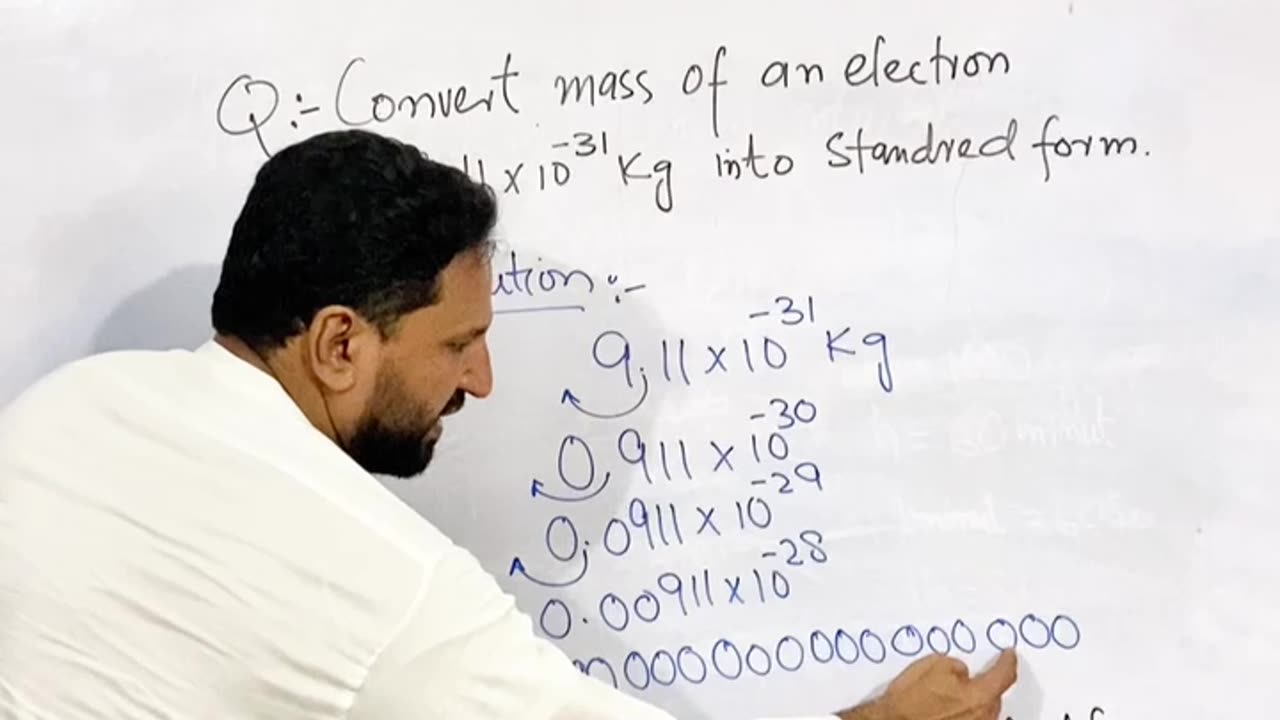 Q:- Convert mass of an election
11 × 10⁻³¹ Kg into Standred form.
ution :-
9.11 × 10⁻³¹ Kg
0.911 × 10⁻³⁰
0.0911 × 10⁻²⁹
0.00911 × 10⁻²⁸
0000000000000000